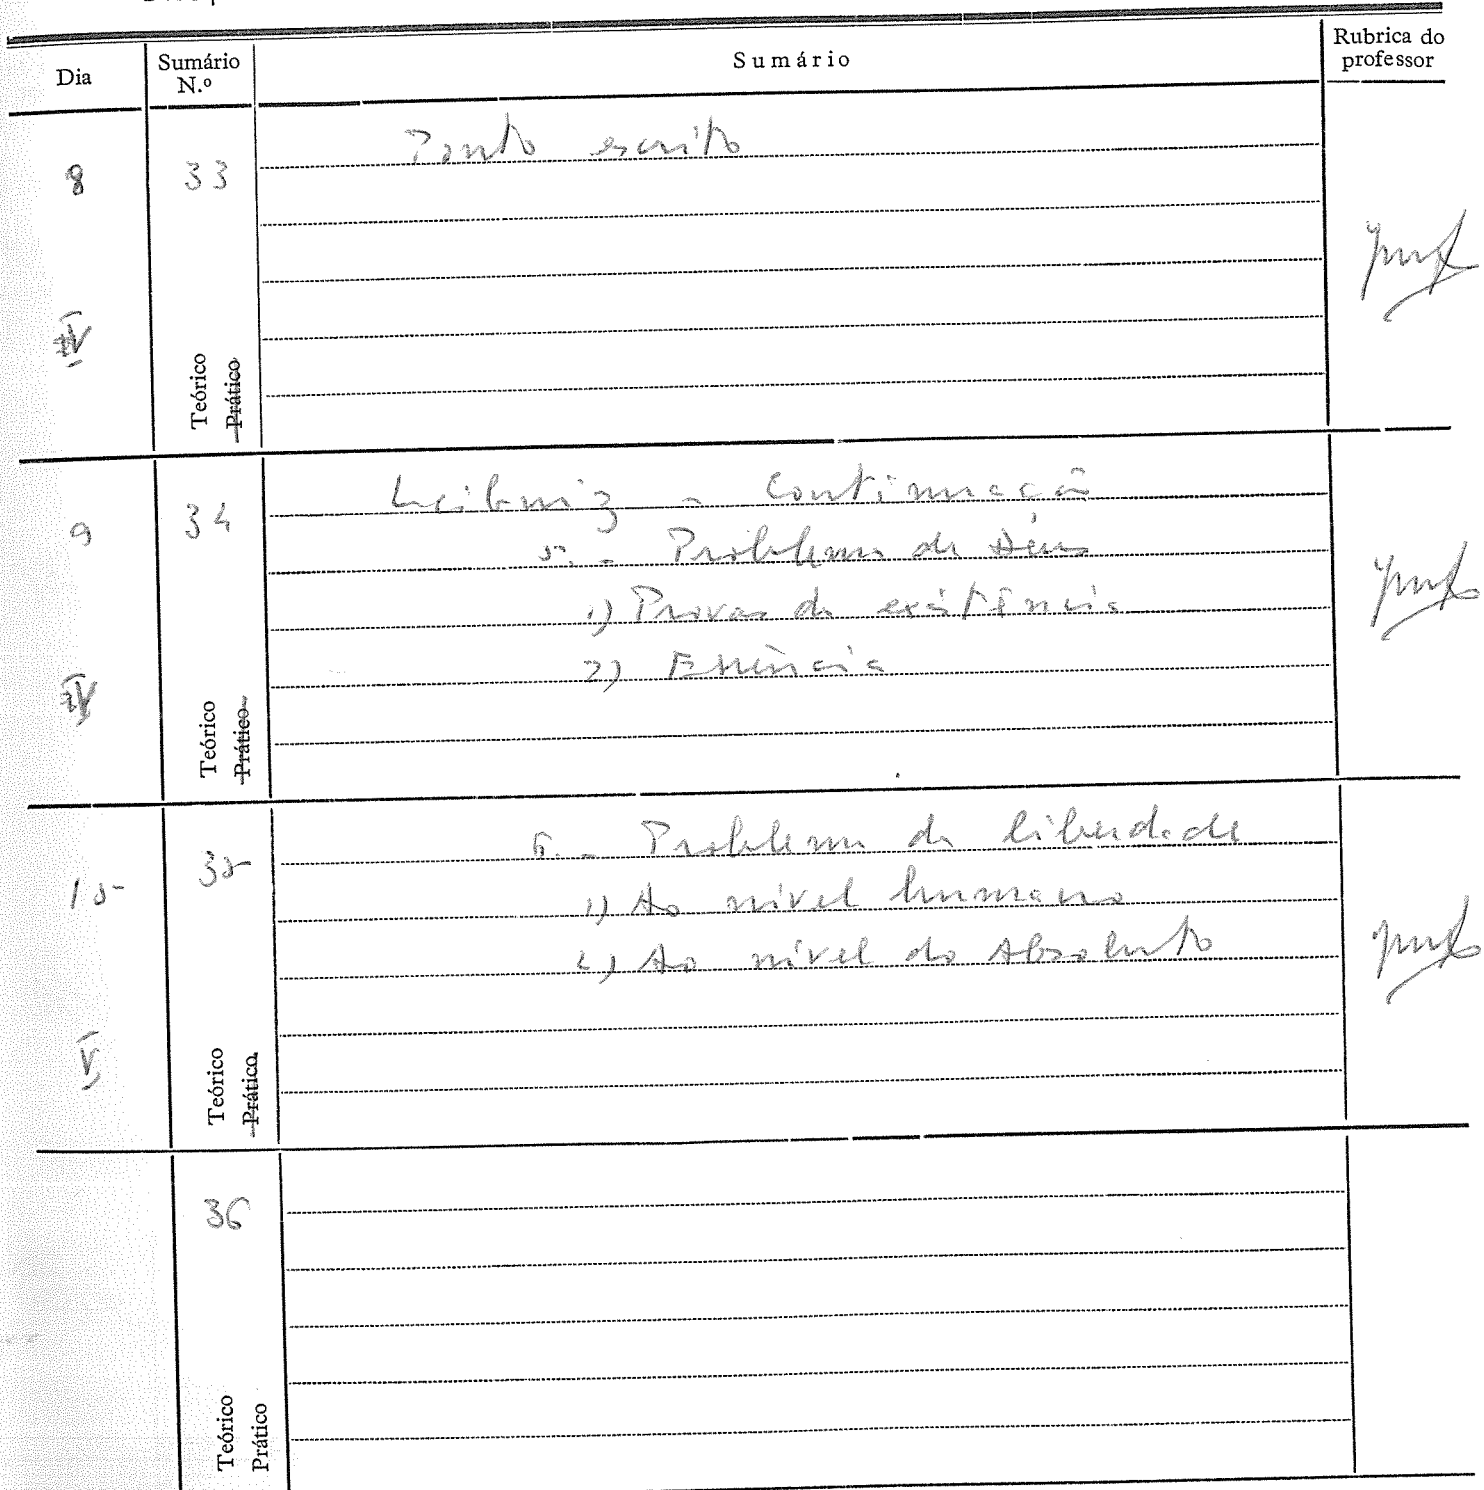 Dia
Sumário N.º
Sumário
Rubrica do professor
8
33
Ponto escrito
IV
Teórico
Prático
9
34
Leibniz - Continuação
5. - Problema de Deus
1) Provas da existência
2) Essência
IV
Teórico
Prático
15
35
6. - Problema da liberdade
1) Ao nível humano
2) Ao nível do Absoluto
V
Teórico
Prático
36
Teórico
Prático